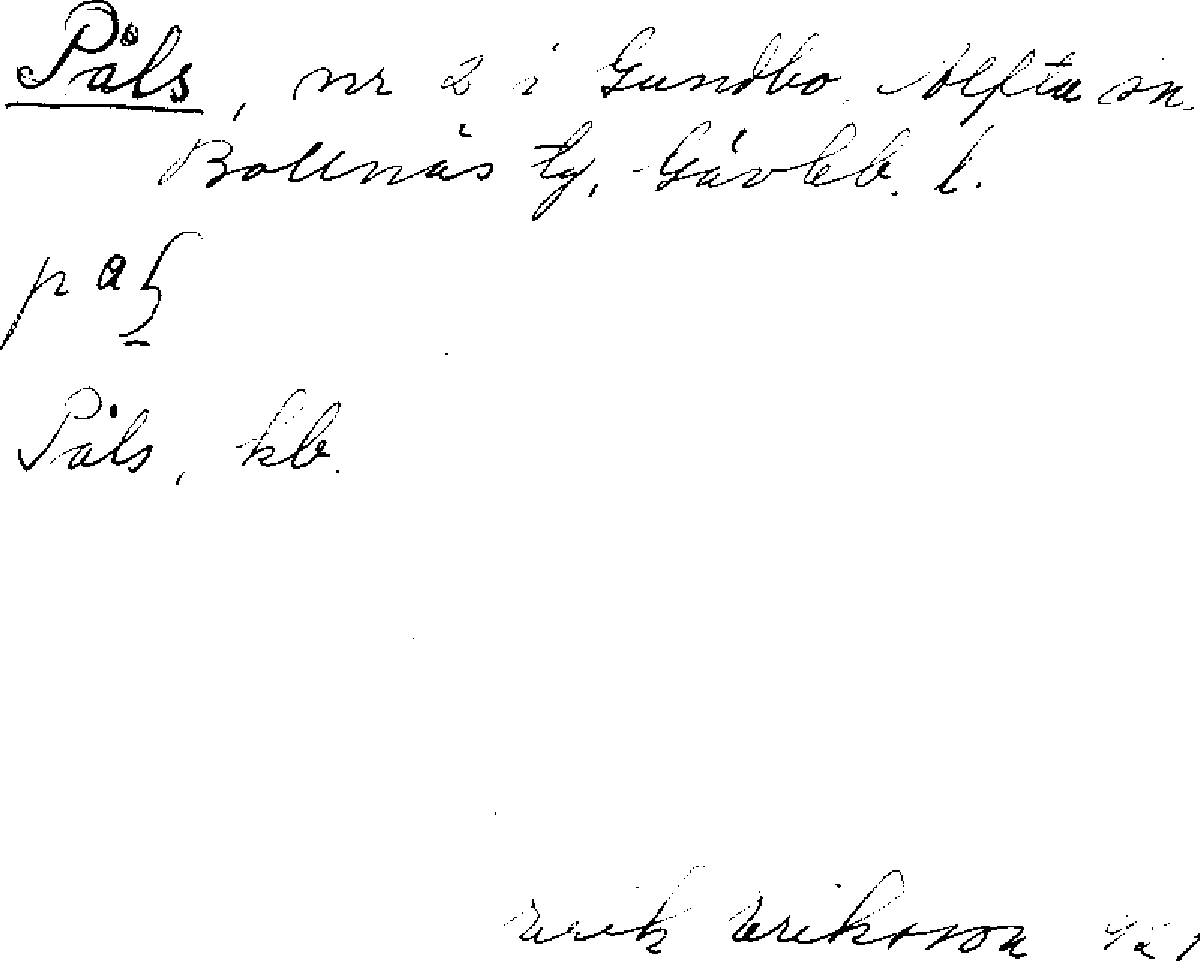 Påls, nr 2 i Gundbo, Alfta sn.
Bollnäs tg, Gävleb. l.
Påls, kb.
Erik Eriksson